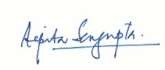 Arpita Sengupta.